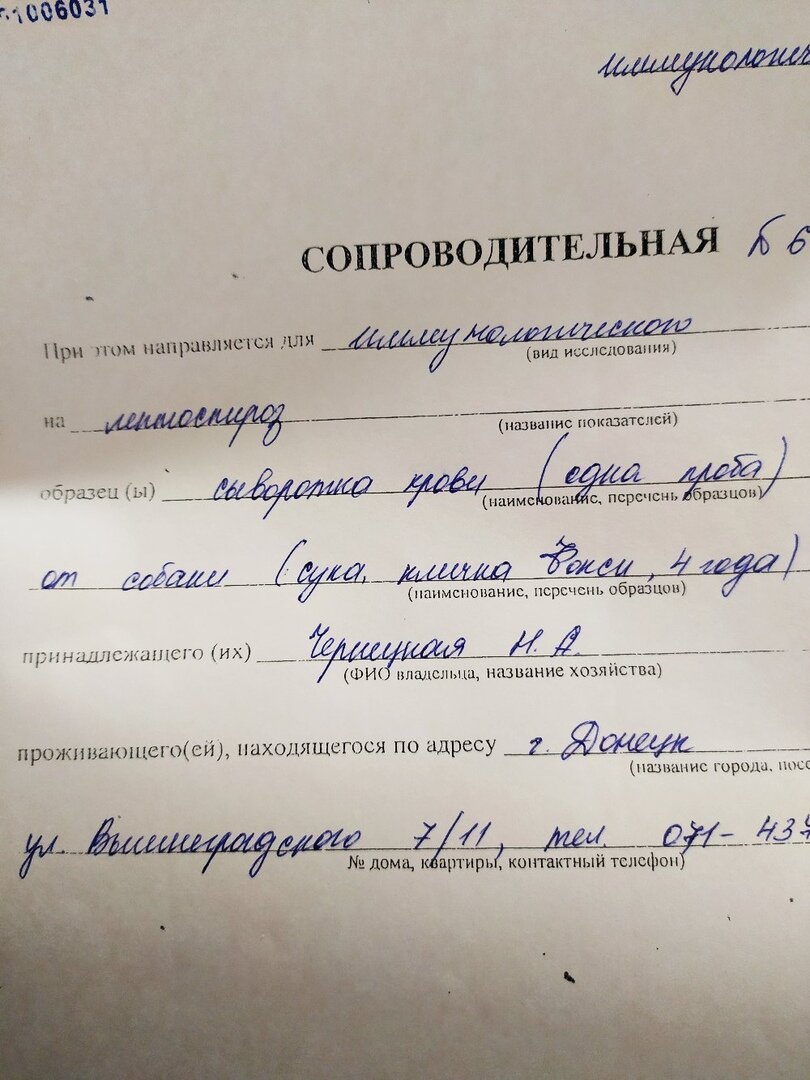 1006031
иммунологич
СОПРОВОДИТЕЛЬНАЯ Б 6
При этом направляется для иммунологического
(вид исследования)
на лептоспироз
(название показателей)
образец (ы) сыворотка крови (одна проба)
(наименование, перечень образцов)
от собаки (сука, кличка Бокси, 4 года)
(наименование, перечень образцов)
принадлежащего (их) Черницкая Н. А.
(ФИО владельца, название хозяйства)
проживающего(ей), находящегося по адресу г. Донецк
(название города, посе
ул. Вышнеградского 7/11, тел. 071-437
№ дома, квартиры, контактный телефон)